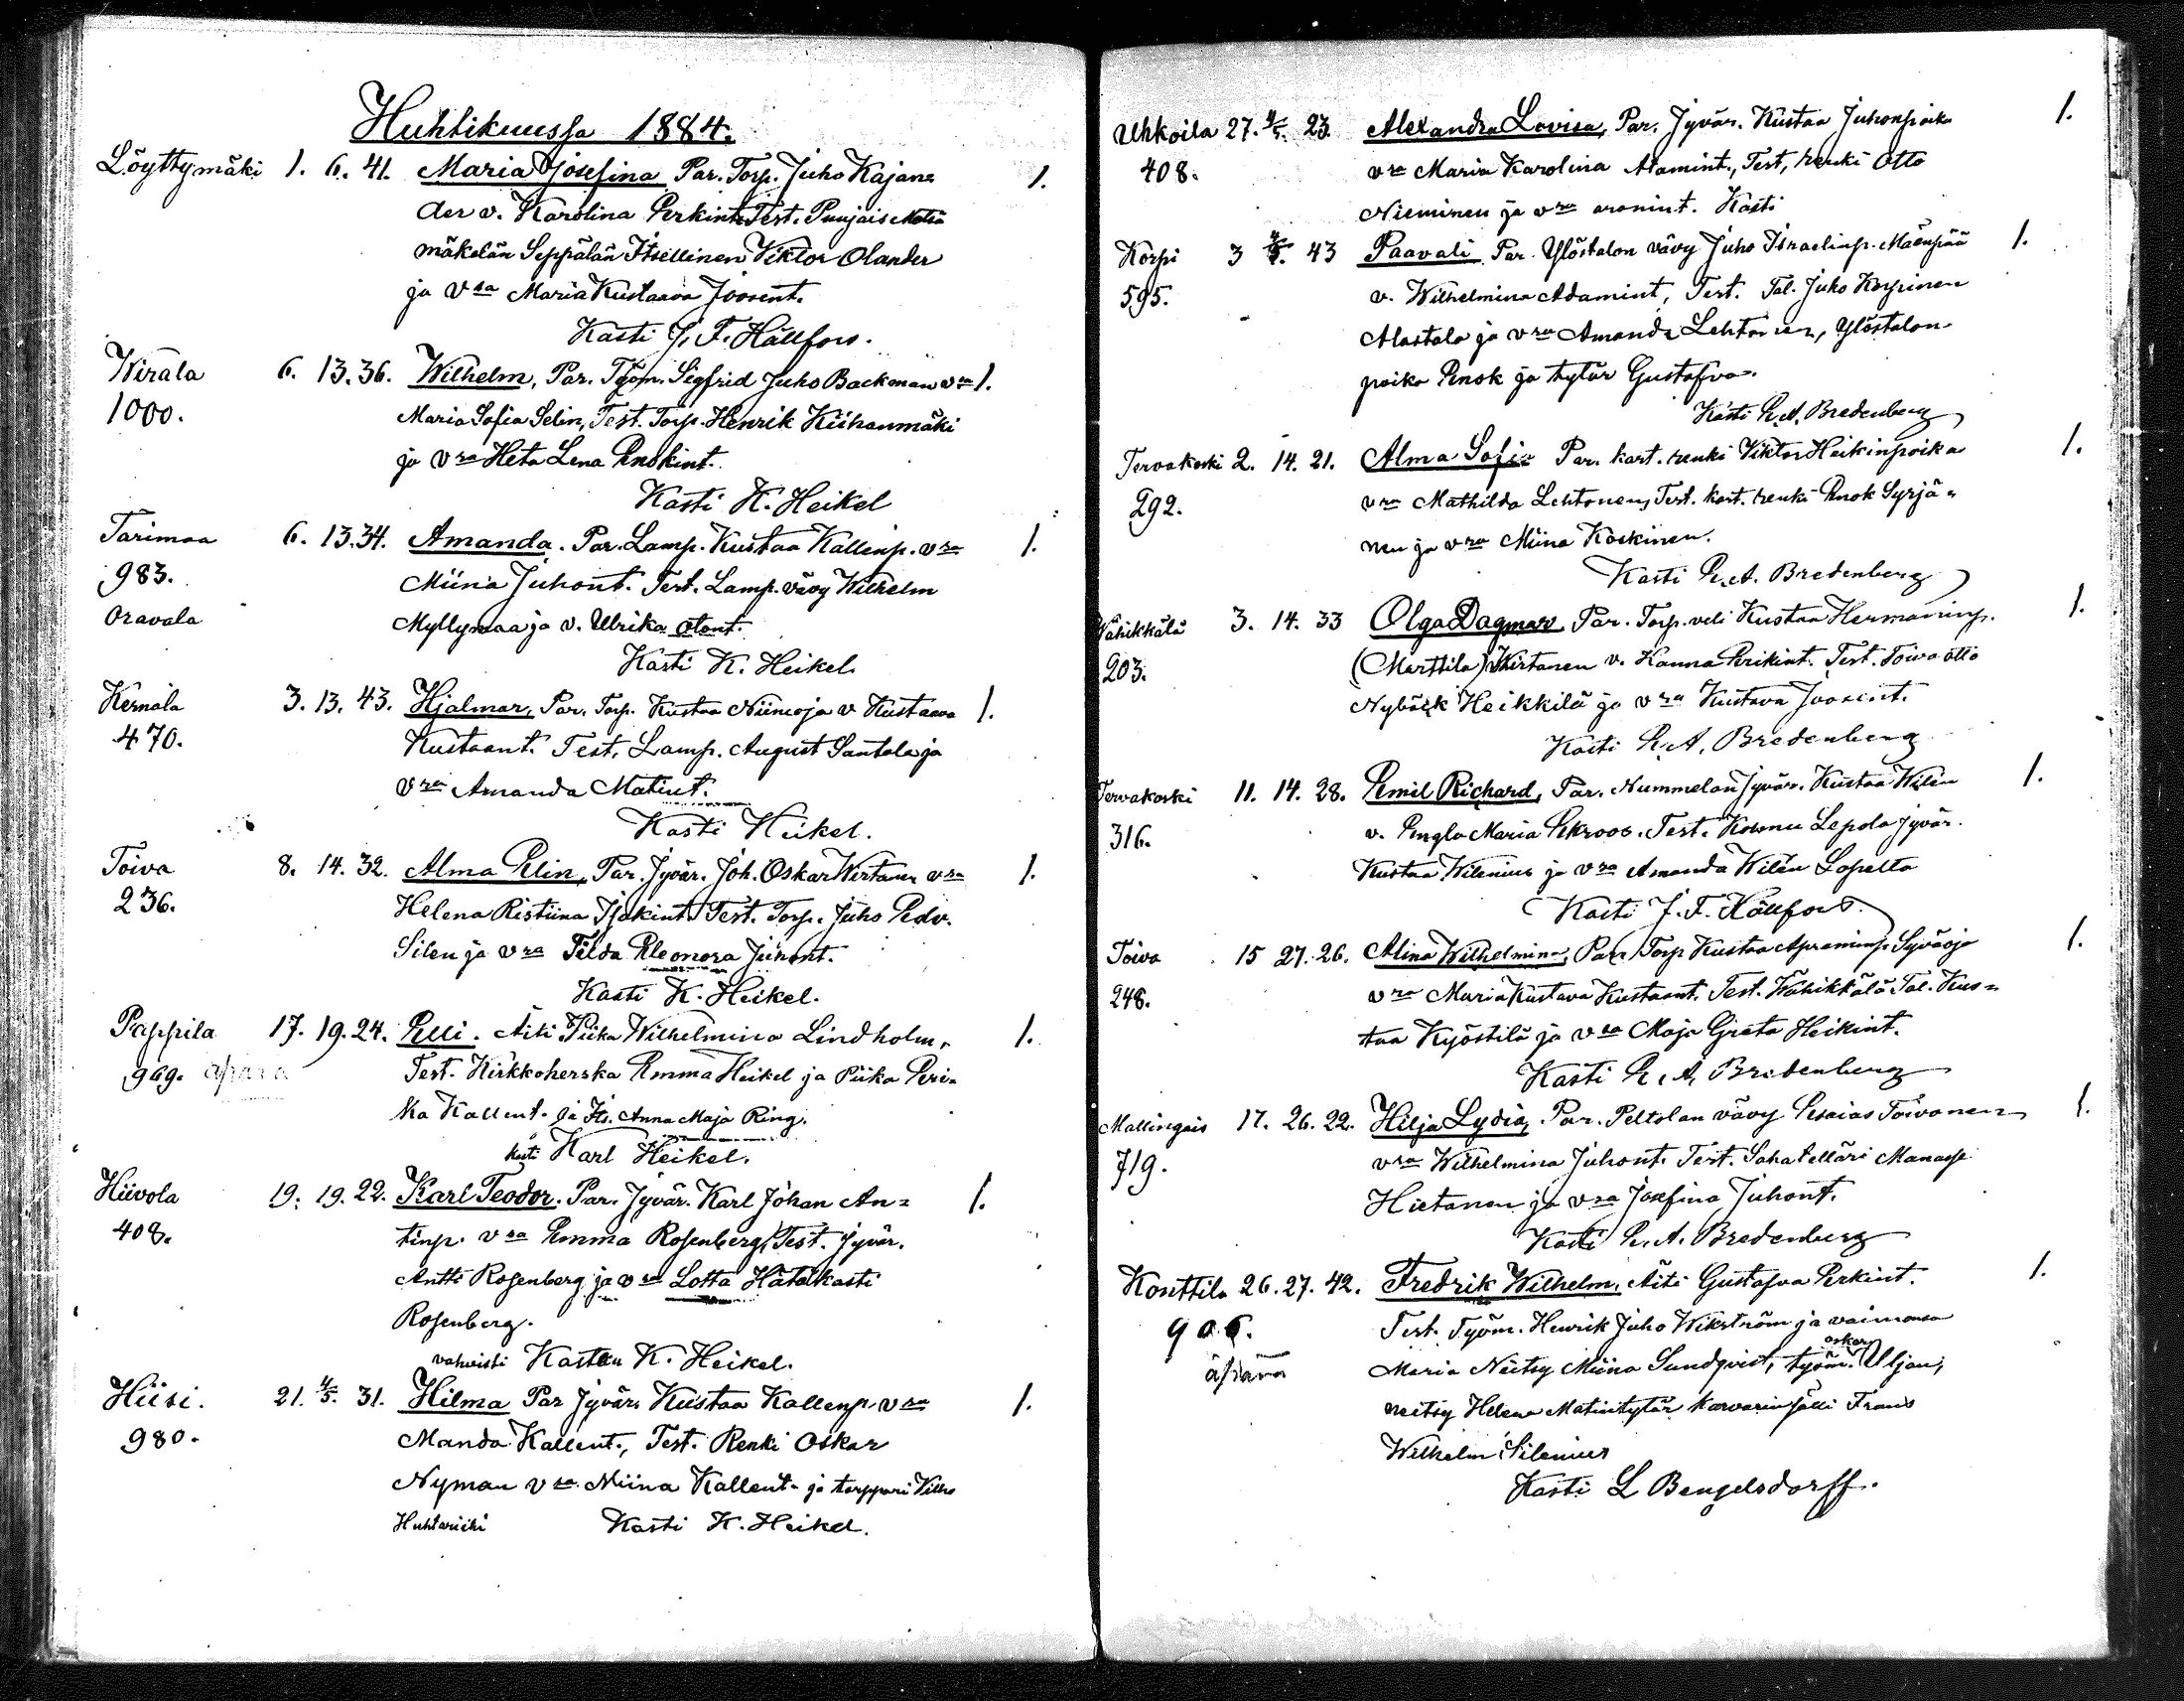 Huhtikuussa 1884.
Löyttymäki 1. 6. 41. Maria Josefina Par. Torp. Juho Kajan= 1.
der v. Karolina Erkint. Test. Puujais
mäkelän Seppälän Itsellinen Viktor Olander
ja vra Maria Kustaava Joosint.
Kasti J. F. Hällfors.
Wirala 6. 13. 36. Wilhelm, Par. Työm. Sigfrid Juho Backman vra 1.
1000. Maria Sofia Selin, Test. Torp. Henrik Kiihanmäki
ja vra Heta Lena Enokint.
Kasti K. Heikel
Tarimaa 6. 13. 34. Amanda. Par. Lamp. Kustaa Kallenp. vra 1.
983. Miina Juhont. Test. Lamp. vävy Wilhelm
Oravala Myllymaa ja v. Ulrika Otont.
Kasti K. Heikel.
Kernala 3. 13. 43. Hjalmar, Par. Torp. Kustaa Niinioja v Kustaava 1.
470. Kustaant. Test. Lamp. August Santala ja
vra Amanda Matint.
Kasti Heikel.
Toiva 8. 14. 32. Alma Elin, Par. Jyvär. Joh. Oskar Wirtanen vra 1.
236. Helena Ristiina Isakint. Test. Torp. Juho Edv.
Silen ja vra Tilda Eleonora Juhont.
Kasti K. Heikel.
Pappila 17. 19. 24. Elli. Äiti Piika Wilhelmina Lindholm, 1.
969. äpärä Test. Kirkkoherska Emma Heikel ja Piika Eri=
ka Kallent. ja Its. Anna Maja Ring.
kasti Karl Heikel.
Hiivola 19. 19. 22. Karl Teodor. Par. Jyvär. Karl Johan An= 1.
408. tinp. vra Emma Rosenberg, Test. Jyvär.
Antti Rosenberg ja vra Lotta Hätäkasti
Rosenberg.
vahvisti Kasteen K. Heikel.
Hiisi. 21. 4/5. 31. Hilma Par Jyvär. Kustaa Kallenp. vra 1.
980. Manda Kallent., Test. Renki Oskar
Nyman vra Miina Kallent. ja torppari Wilho
Kasti K. Heikel.
Uhkoila 27. 4/5. 23. Alexandra Lovisa, Par. Jyvär. Kustaa Juhonpoika 1.
408. vra Maria Karolina Atamint., Test, renki Otto
Nieminen ja vra aronint. Kasti
Korpi 3 4/5. 43 Paavali Par. Ylöstalon vävy Juho Israelinp. Mäenpää 1.
595. v. Wilhelmina Adamint, Test. Tal. Juho
Alastalo ja vra Amanda Lehtonen, Ylöstalon
poika Enok ja tytär Gustafva.
Kasti E. A. Bredenberg
Tervakoski 2. 14. 21. Alma Sofia Par. kart. renki Viktor Heikinpoika 1.
292. vra Mathilda Lehtonen, Test. kart. renki Enok Syrjä=
nen ja vra Miina Koskinen.
Kasti E. A. Bredenberg
Wähikkälä 3. 14. 33 Olga Dagmar, Par. Torp. veli Kustaa Hermaninp. 1.
203. (Marttila) Wirtanen v. Hanna Erikint. Test. Toiva Otto
Nybäck Heikkilä ja vra Kustava Joosint.
Kasti E. A. Bredenberg
Tervakoski 11. 14. 28. Emil Richard, Par. Nummelan Jyvär. Kustaa Wilén 1.
316. v. Engla Maria Ekroos. Test. Lepola Jyvär.
Kustaa Wilenius ja vra Amanda Wilén Lopelta
Kasti J. F. Hällfors.
Toiva 15 27. 26. Alina Wilhelmina, Par. Torp Kustaa Apraminp. Syväoja 1.
248. vra Maria Kustava Kustaant. Test. Wähikkälä Tal. Kus=
taa Kyöstilä ja vra Maja Greta Heikint.
Kasti E. A. Bredenberg
Mallingais 17. 26. 22. Hilja Lydia, Par. Peltolan vävy Esaias Toivonen 1.
719. vra Wilhelmina Juhont. Test. Manasse
Hietanen ja vra Josefina Juhont.
Kasti E. A. Bredenberg
Konttila 26. 27. 42. Fredrik Wilhelm, Äiti Gustafva Erkint. 1.
906. Test. Työm. Henrik Juho Wikström ja vaimonsa
äpärä Maria Neitsy Miina Sundqvist, työm. oskar
neitsy Helena Matintytär karvarin sälli Frans
Wilhelm Silenius
Kasti L Bengelsdorff.